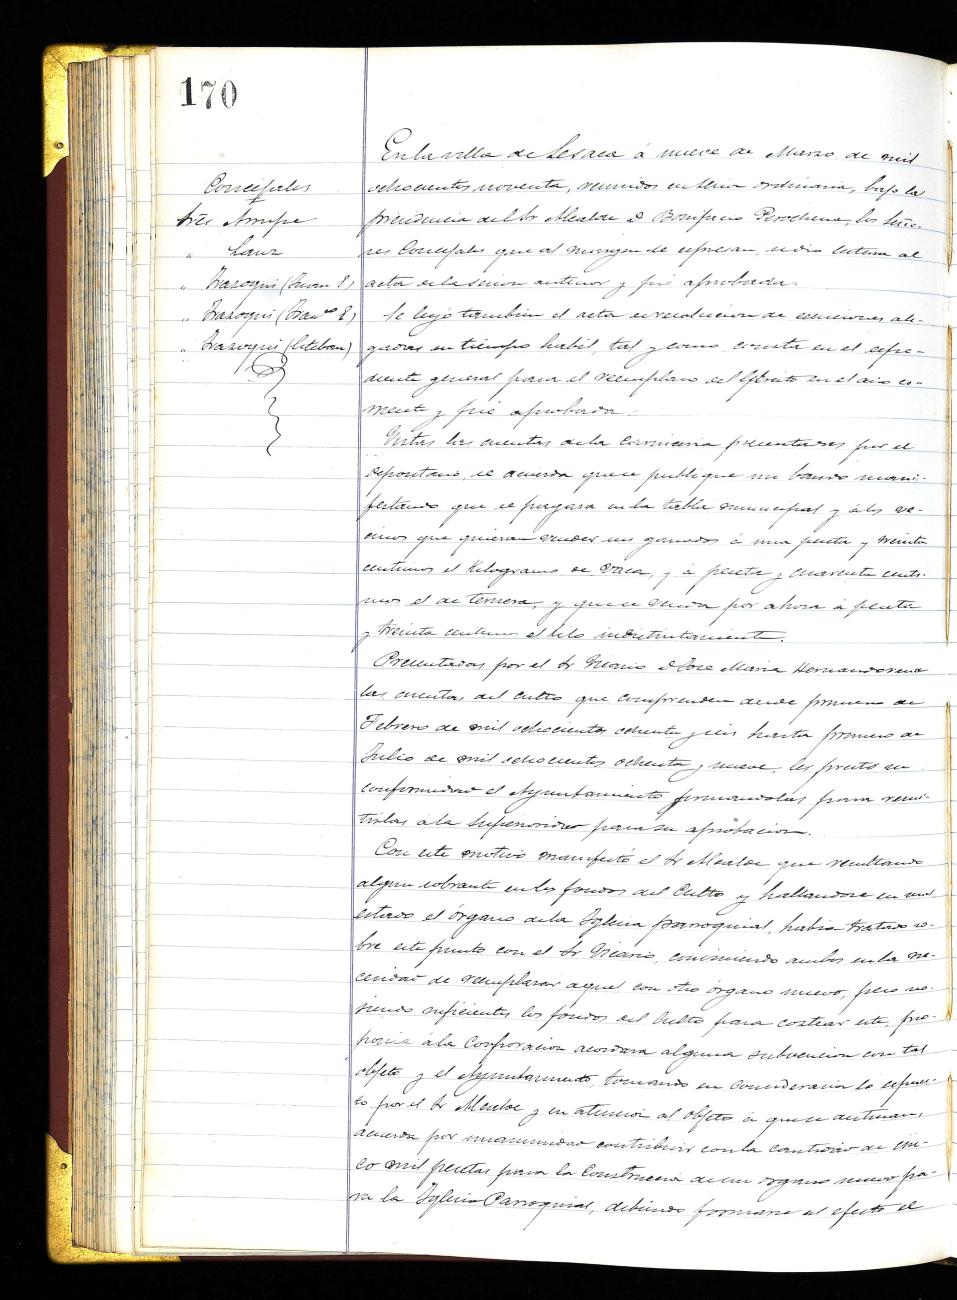 170
Concejales
Sres Arrupe
" Sanz
" Irazoqui (Juan F)
" Irazoqui (Franco E)
" Irazoqui (Esteban)
En la villa de Lesaca á nueve de Marzo de mil
ochocientos noventa, reunidos en sesion ordinaria, bajo la
presidencia del Sr Alcalde D Bonifacio Perochena, los Seño-
res Concejales que al margen se espresan, se dio lectura al
acta de la sesion anterior y fué aprobada.
Se leyó tambien el acta de resolucion de esenciones ale-
gadas en tiempo habil, tal y como consta en el espe-
diente general para el reemplazo del Ejército en el año co-
rriente y fué aprobada.
Vistas las cuentas de la carniceria presentadas por el
depositario, se acuerda que se publique un bando mani-
festando que se pagara en la tabla municipal y á los ve-
cinos que quieran vender sus ganados á una peseta y treinta
centimos el kilogramo de vaca, y á peseta y cuarenta centi-
mos el de ternera, y que se venda por ahora á peseta
y treinta centimos el kilo indistintamente.
Presentadas por el Sr Vicario D Jose Maria Hernandorena
las cuentas del culto que comprenden desde primero de
Febrero de mil ochocientos ochenta y seis hasta primero de
Julio de mil ochocientos ochenta y nueve, les prestó su
conformidad el Ayuntamiento firmandolas para remi-
tirlas á la Superioridad para su aprobacion.
Con este motivo manifestó el Sr Alcalde que resultando
algun sobrante en los fondos del Culto y hallandose en mal
estado el órgano de la Iglesia parroquial, habia tratado so-
bre este punto con el Sr Vicario, conviniendo ambos en la ne-
cesidad de reemplazar aquel con otro órgano nuevo, pero no
siendo suficientes los fondos del Culto para costear este, pro-
ponia á la Corporacion acordara alguna subvencion con tal
objeto y el Ayuntamiento, tomando en consideracion lo espues-
to por el Sr Alcalde y en atencion al objeto á que se destinan,
acuerda por unanimidad contribuir con la cantidad de cin-
co mil pesetas para la construccion de un organo nuevo pa-
ra la Iglesia Parroquial, debiendo formarse al efecto el